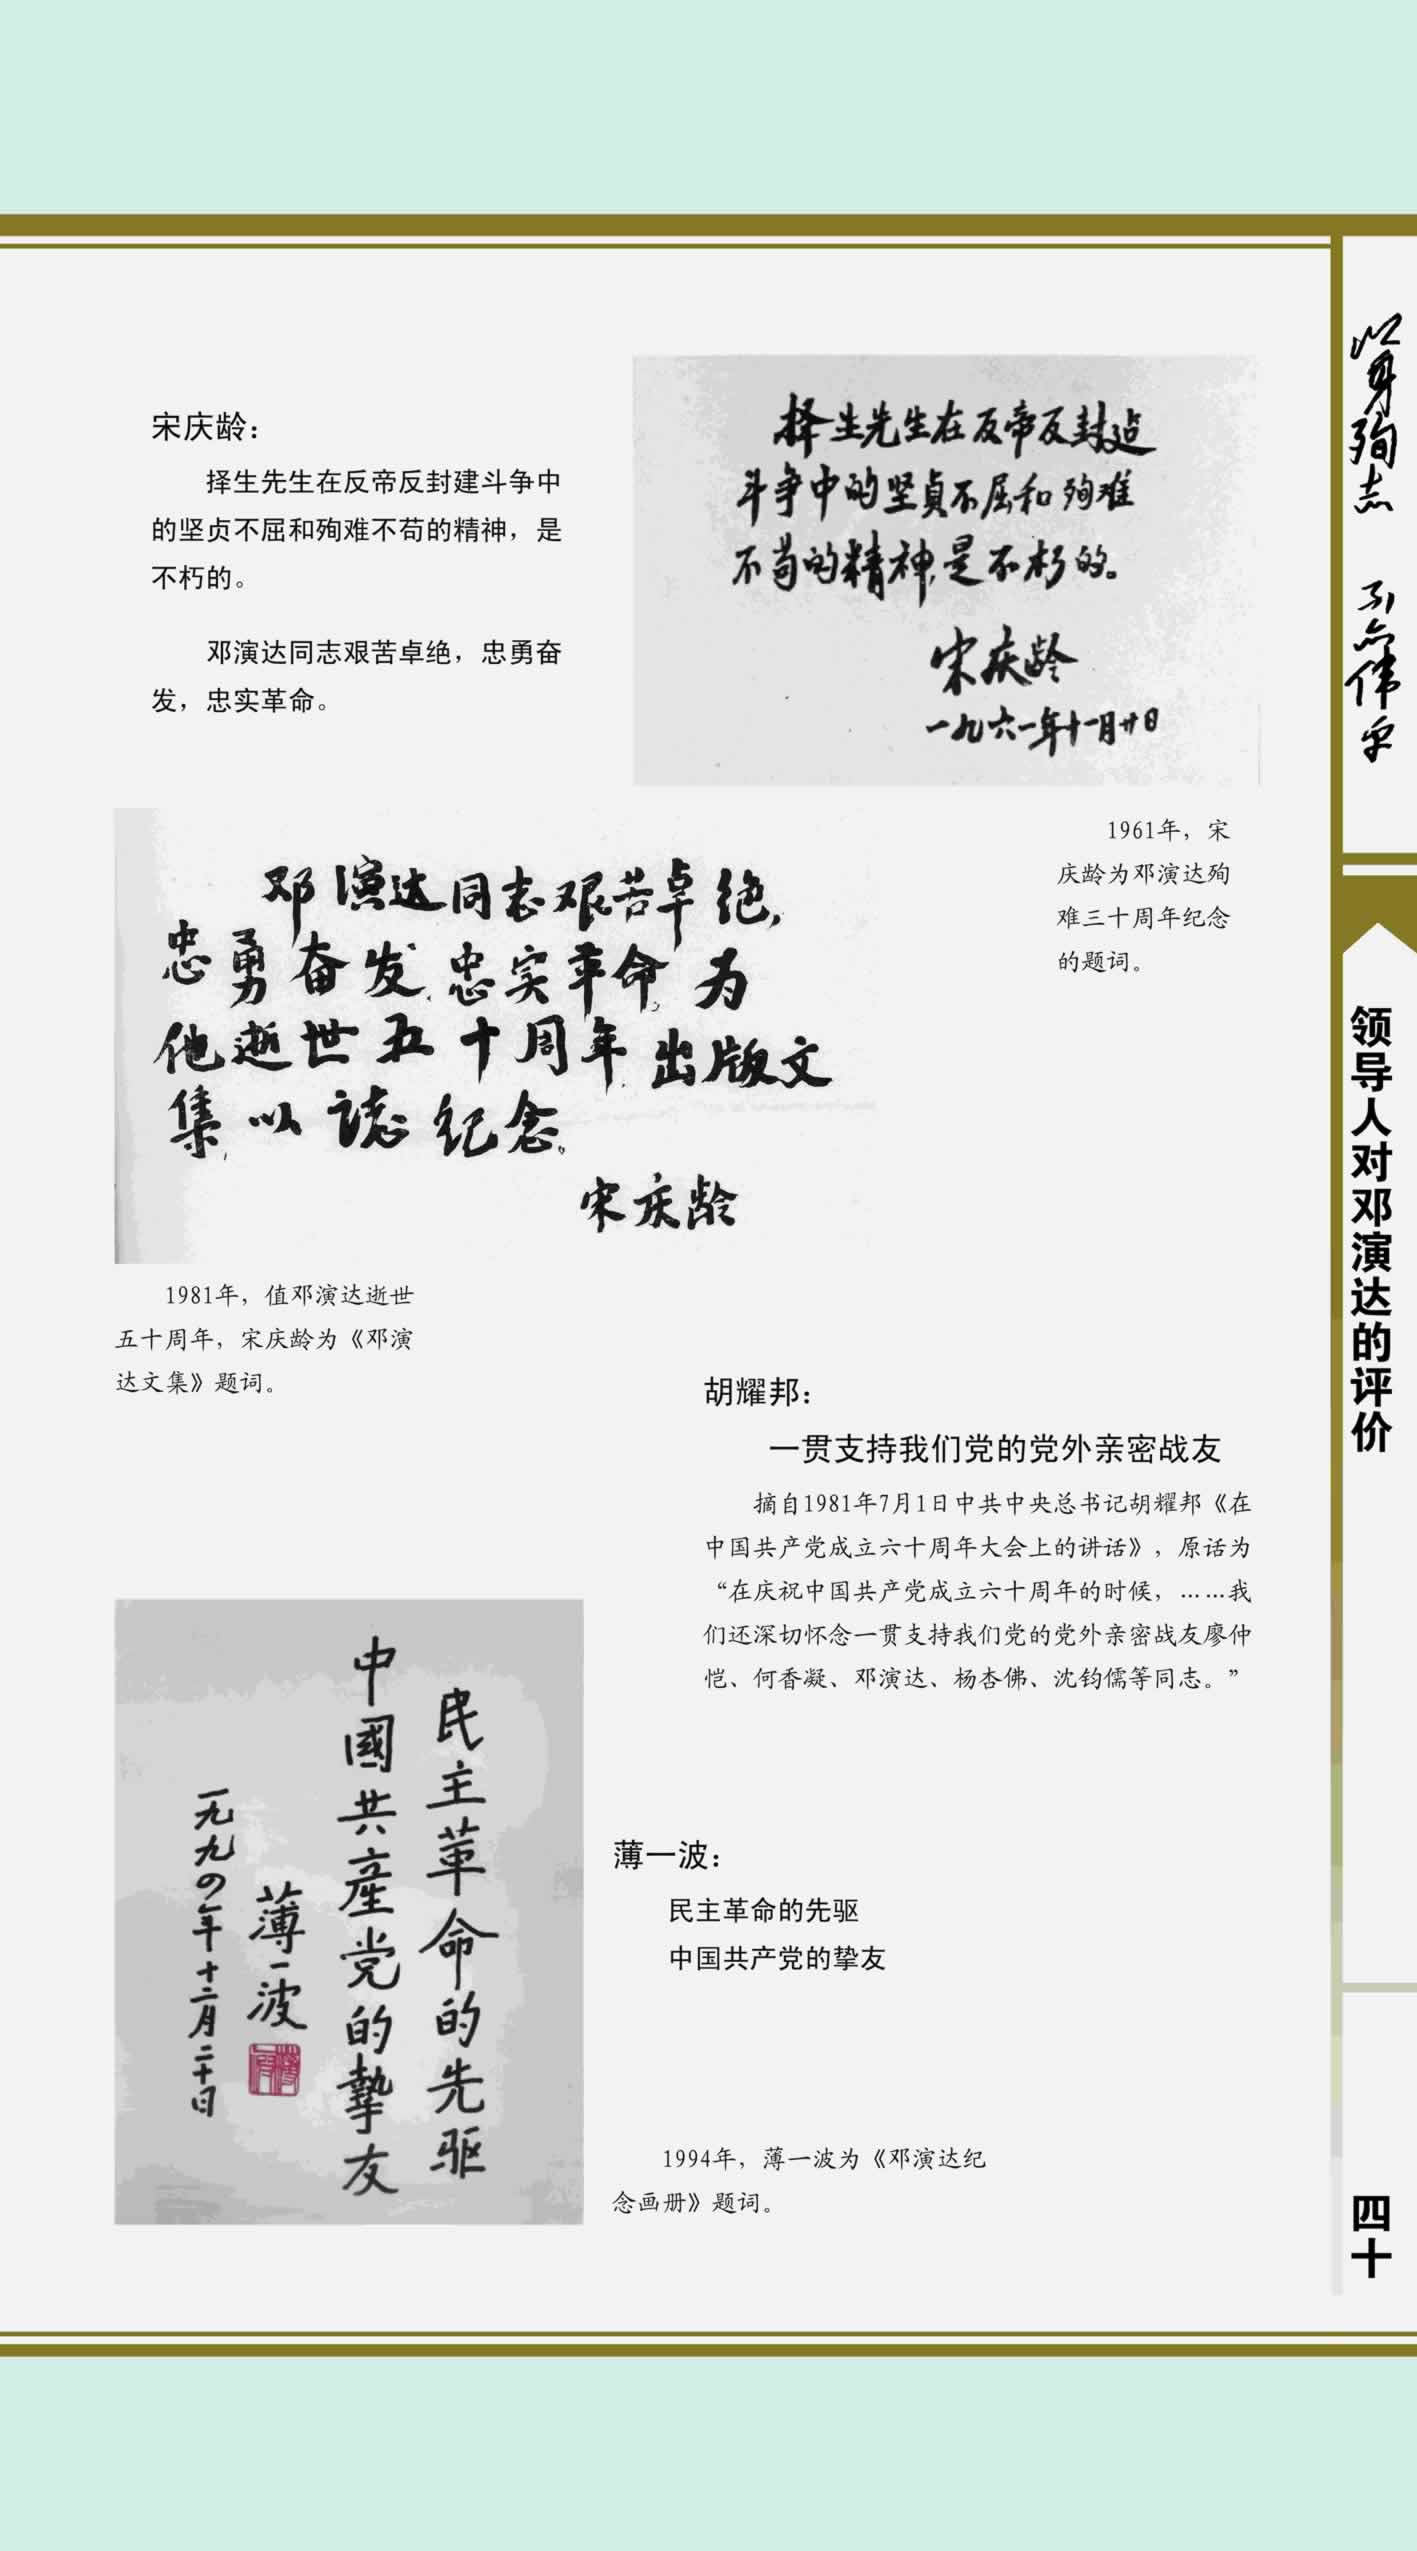 宋庆龄：
择生先生在反帝反封建斗争中
的坚贞不屈和殉难不苟的精神，是
不朽的。
邓演达同志艰苦卓绝，忠勇奋
发，忠实革命。
择生先生在反帝反封建
斗争中的坚贞不屈和殉难
不苟的精神，是不朽的。
宋庆龄
一九六一年十一月廿日
1961年，宋
庆龄为邓演达殉
难三十周年纪念
的题词。
邓演达同志艰苦卓绝，
忠勇奋发，忠实革命，为
他逝世五十周年，出版文
集，以誌纪念。
宋庆龄
1981年，值邓演达逝世
五十周年，宋庆龄为《邓演
达文集》题词。
胡耀邦：
一贯支持我们党的党外亲密战友
摘自1981年7月1日中共中央总书记胡耀邦《在
中国共产党成立六十周年大会上的讲话》，原话为
“在庆祝中国共产党成立六十周年的时候，……我
们还深切怀念一贯支持我们党的党外亲密战友廖仲
恺、何香凝、邓演达、杨杏佛、沈钧儒等同志。”
民主革命的先驱
中國共產党的摯友
薄一波
一九九四年十二月二十日
薄一波：
民主革命的先驱
中国共产党的挚友
1994年，薄一波为《邓演达纪
念画册》题词。
以身殉志
领导人对邓演达的评价
四十